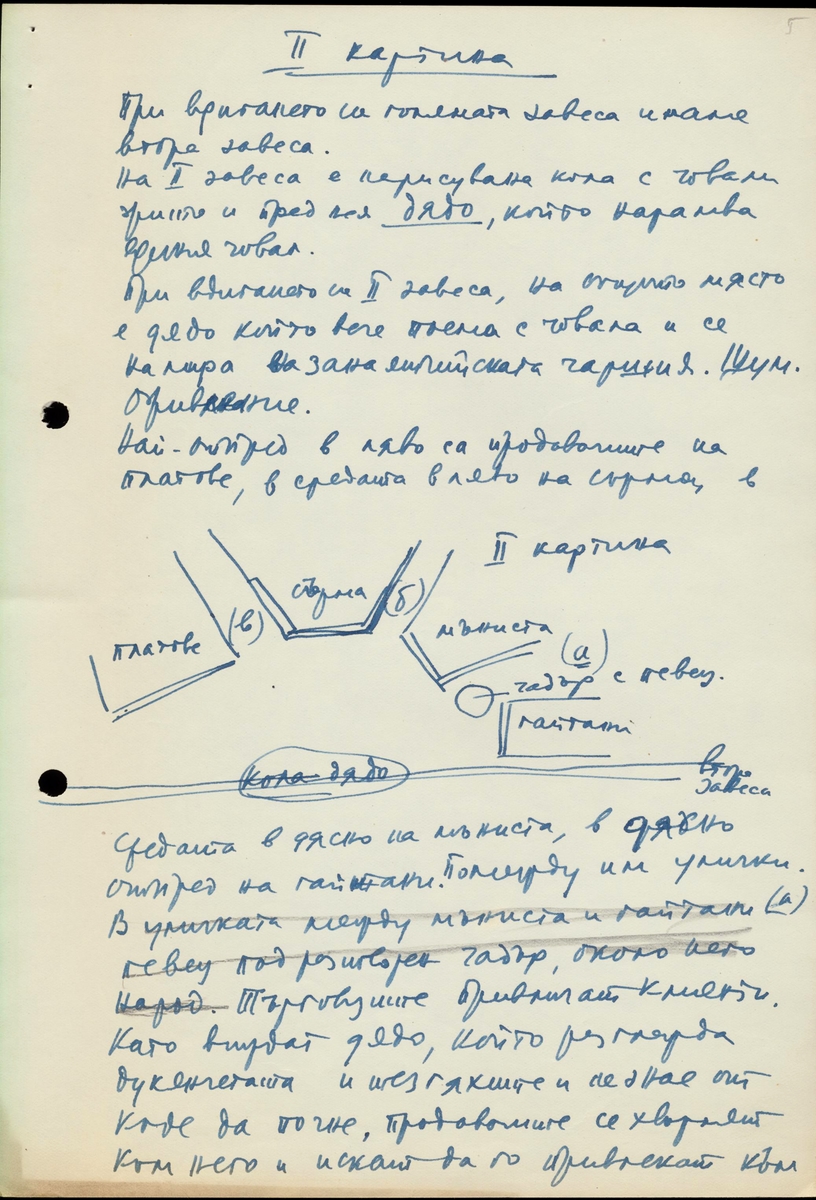 5
II картина
При вдигането на голямата завеса имаме
втора завеса.
На II завеса е нарисувана кола с човали
жито и пред нея дядо, който нарамва
единия човал.
При вдигането на II завеса, на открито място
е дядо който вече поема с човала и се
намира на занаятчийската чаршия. Шум.
Оживление.
Най-отпред в ляво са продавачите на
платове, в средата в ляво на сърма, в
II картина
сърма
(б)
(в)
платове
мъниста
(а)
чадър с певец.
гайтани
кола дядо
втора
завеса
средата в дясно на мъниста, в дясно
отпред на гайтани. Помежду им улички.
В уличката между мъниста и гайтани (а)
певец под разтворен чадър, около него
народ. Търговците привличат клиенти.
Като виждат дядо, който разглежда
дукенчетата и тезгяхите и не знае от
къде да почне, продавачите се хвърлят
към него и искат да го привлекат към